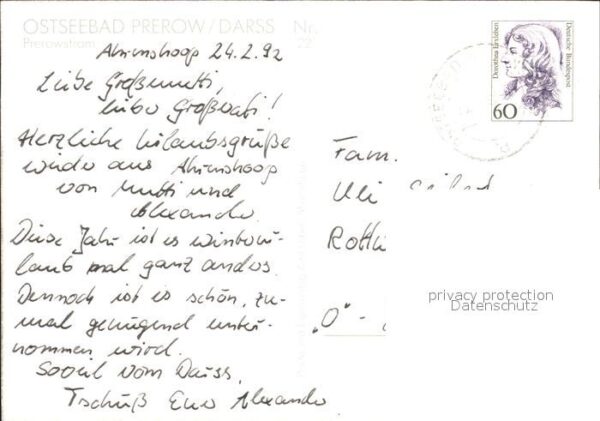 OSTSEEBAD PREROW/DARSS Nr.
Prerowstrom
Ahrenshoop 24.2.92
Liebe Großmutti,
lieber Großvati!
Herzliche Urlaubsgrüße
wieder aus Ahrenshoop
von Mutti und
Alexander.
Diese Jahr ist es Winterur-
laub mal ganz anders.
Dennoch ist es schön, zu-
mal genügend unter-
nommen wird.
Soviel vom Darss,
Tschüß Euer Alexander
Dorothea Erxleben
Deutsche Bundespost
60
Fam.
"O"-
privacy protection
Datenschutz